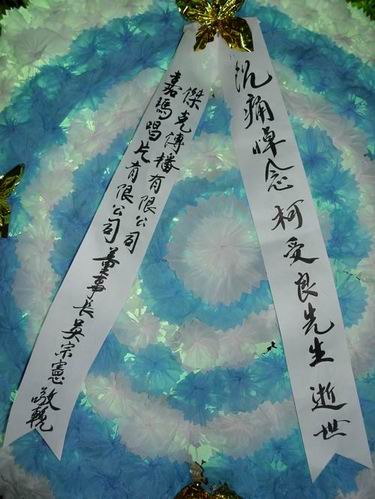 沉痛悼念柯受良先生逝世
傑克傳播有限公司
嘉瑪唱片有限公司董事長吳宗憲敬輓